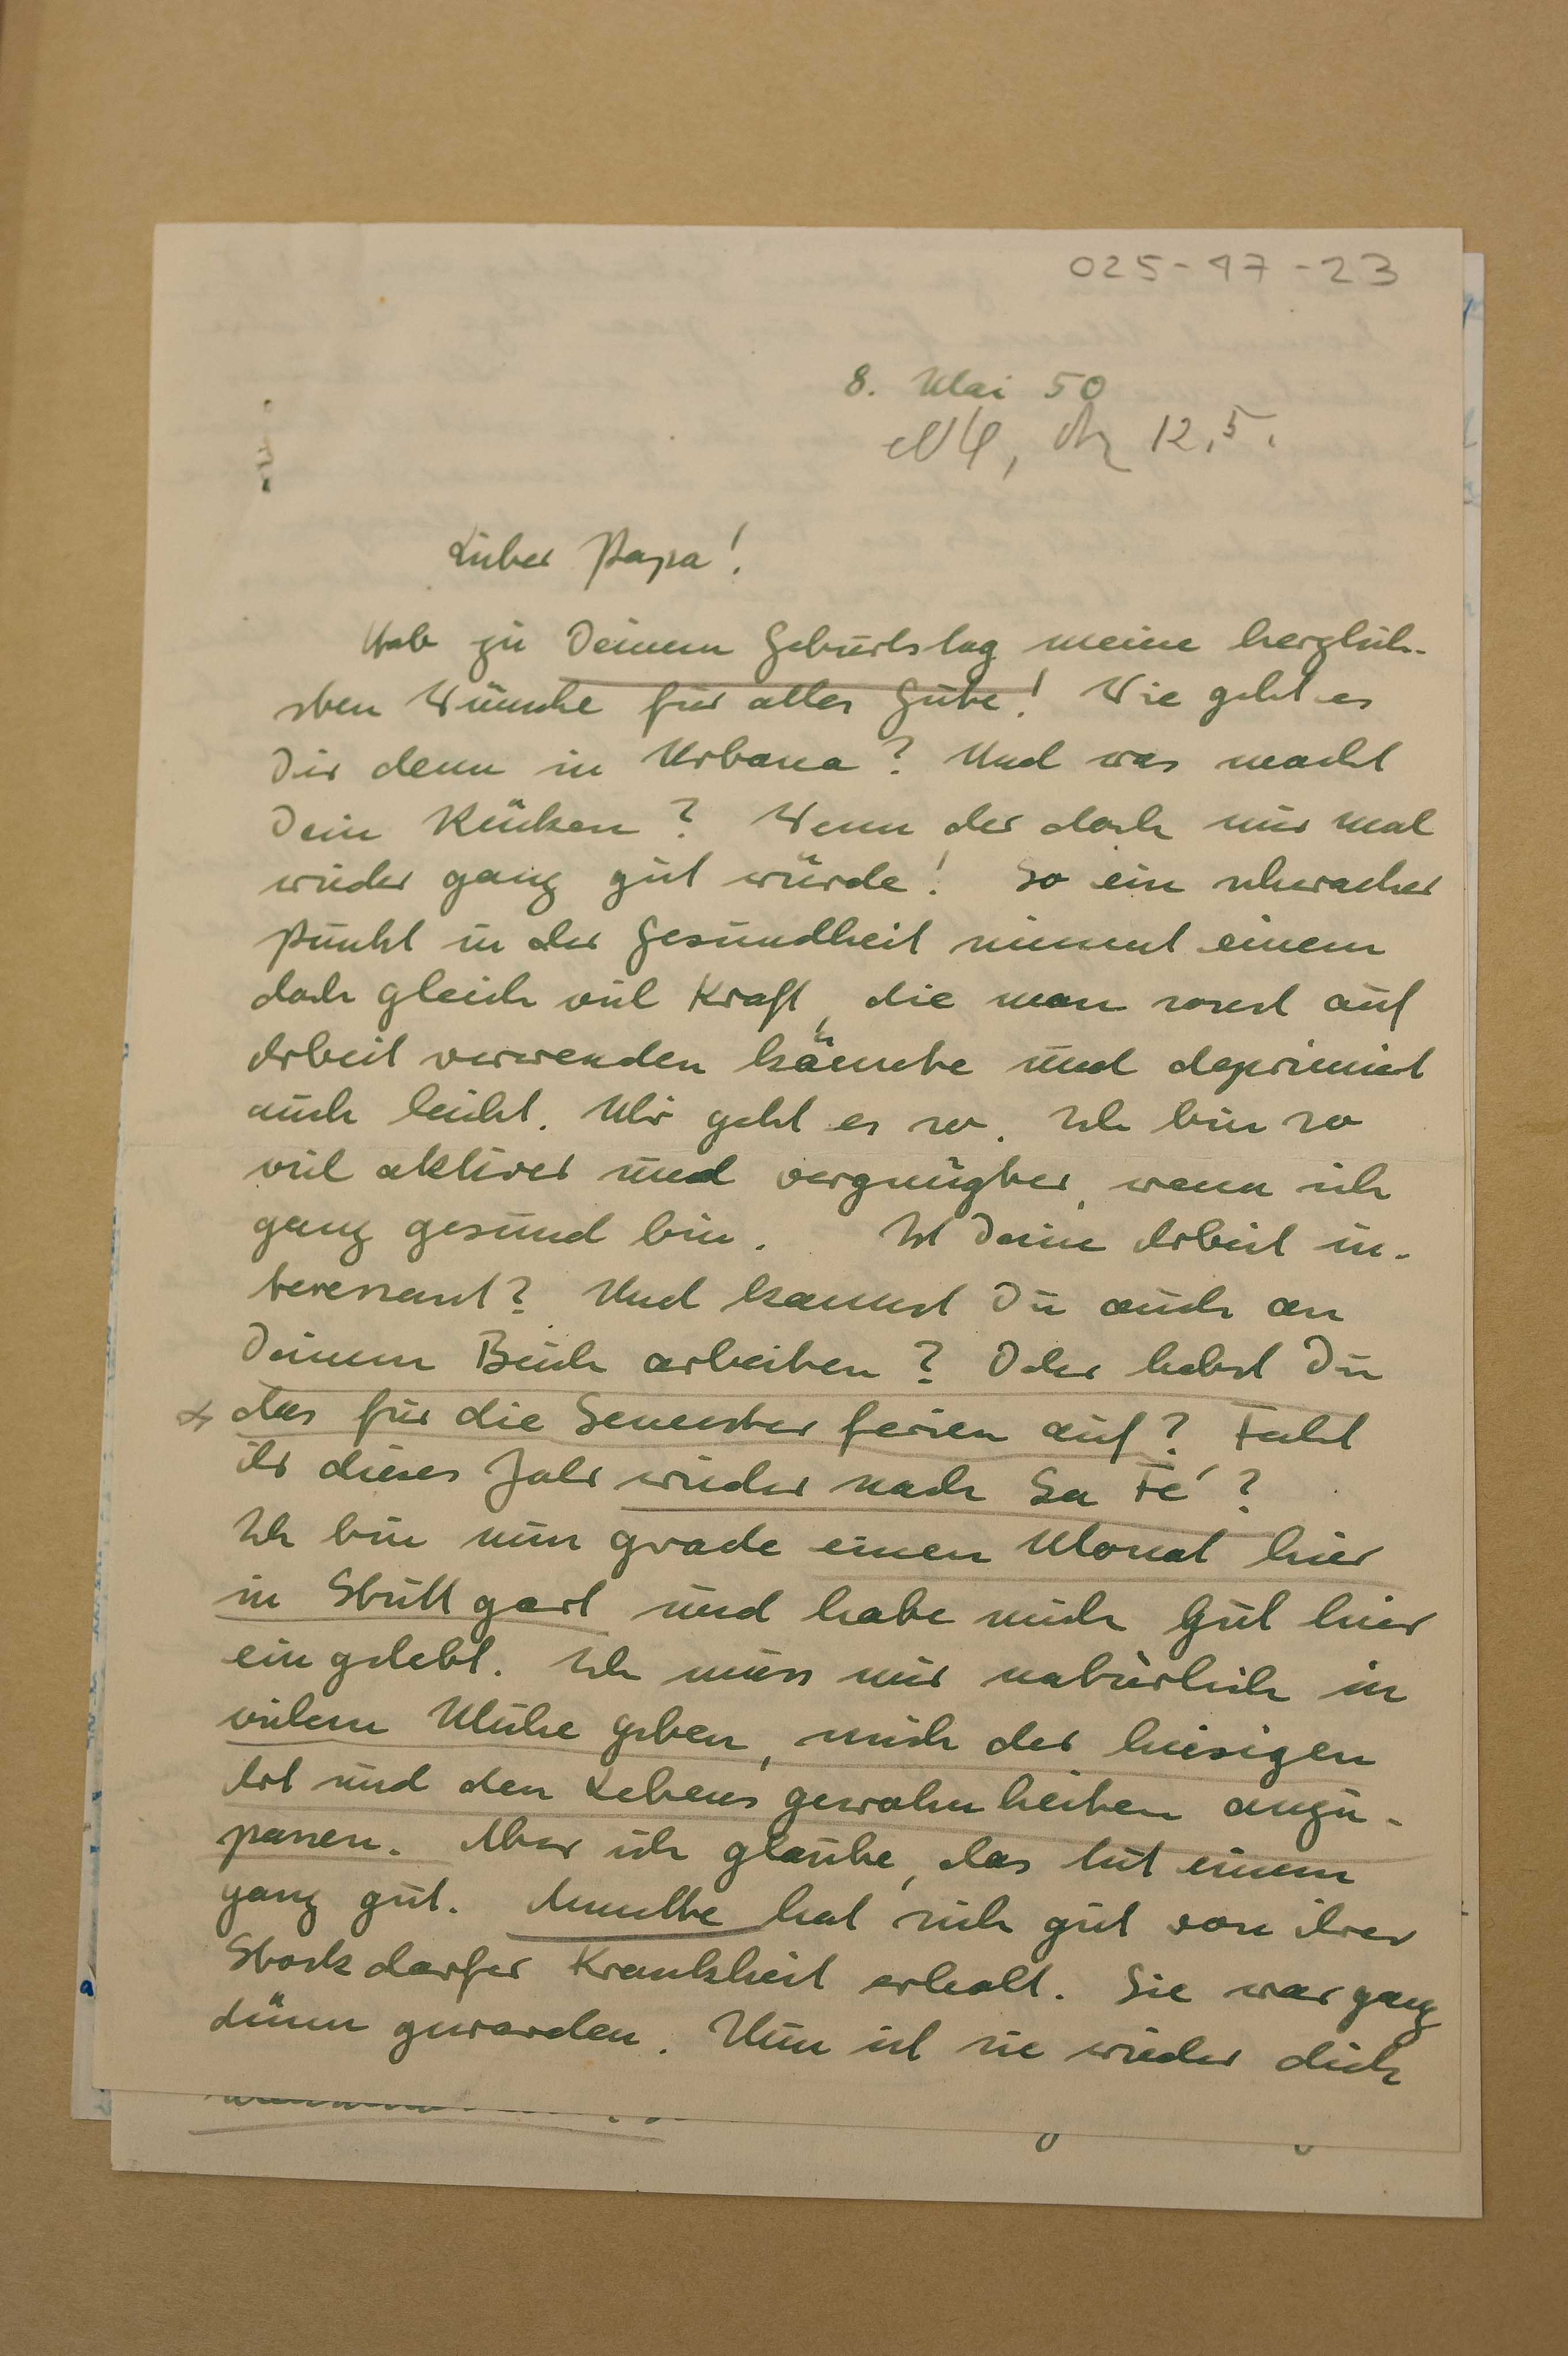 025-47-23
8. Mai 50
12.5.
Lieber Papa!
Hab zu Deinem Geburtstag meine herzlich-
sten Wünsche für alles Gute! Wie geht es
Dir denn in Urbana? Und was macht
Dein Rücken? Wenn der doch nur mal
wieder ganz gut würde! So ein schwacher
Punkt in der Gesundheit nimmt einem
doch gleich viel Kraft, die man sonst auf
Arbeit verwenden könnte und deprimiert
auch leicht. Mir geht es so. Ich bin so
viel aktiver und vergnügter, wenn ich
ganz gesund bin. Ist Deine Arbeit in-
teressant? Und kannst Du auch an
Deinem Buch arbeiten? Oder hebst Du
das für die Semesterferien auf? Fahrt
ihr dieses Jahr wieder nach Sa Fé?
Ich bin nun grade einen Monat hier
in Stuttgart und habe mich gut hier
eingelebt. Ich muss mir natürlich in
vielem Mühe geben, mich der hiesigen
Art und den Lebensgewohnheiten anzu-
passen. Aber ich glaube, das tut einem
ganz gut. Annette hat sich gut von ihrer
Stockdorfer Krankheit erholt. Sie war ganz
dünn geworden. Nun ist sie wieder dick